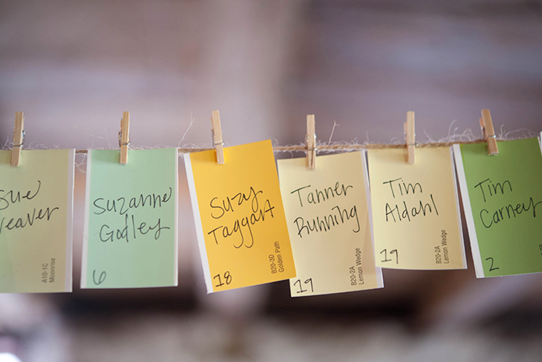 Sue
Weaver
A10-1C
Moonrise
Suzanne
Gadley
6
Suzy
Taggart
18
B20-3D
Golden Path
Tanner
Running
19
B20-2A
Lemon Wedge
Tim
Aldahl
19
B20-2A
Lemon Wedge
Tim
Carney
2